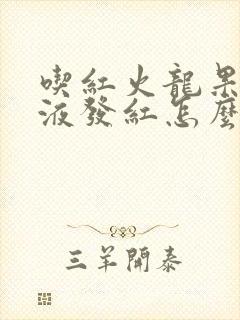 喫紅火龍果
液發紅怎麼
三羊開泰